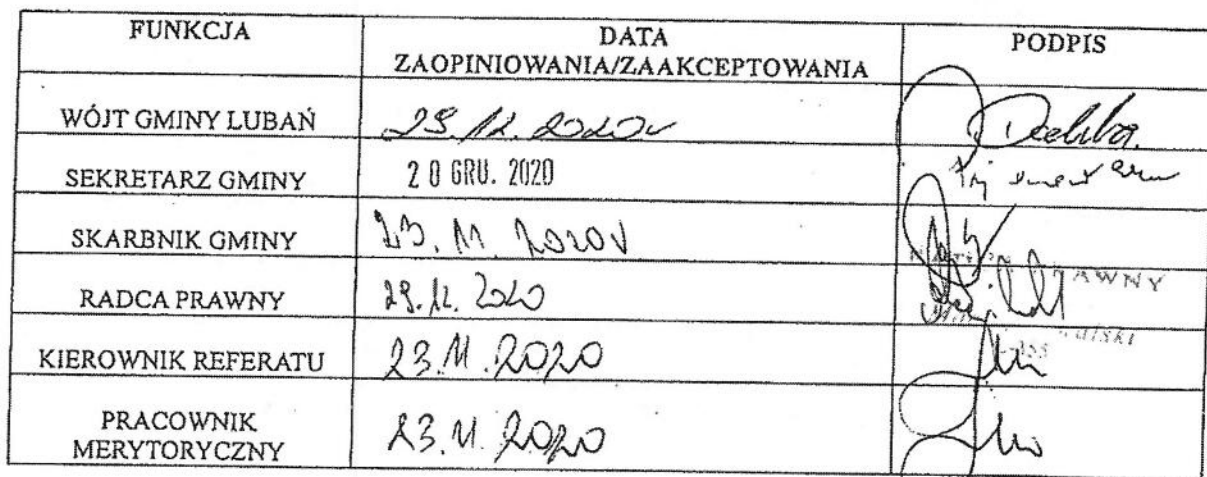 FUNKCJA
DATA
ZAOPINIOWANIA/ZAAKCEPTOWANIA
PODPIS
WÓJT GMINY LUBAŃ
12. 2020r
SEKRETARZ GMINY
GRU. 2020
SKARBNIK GMINY
23. 11. 2020r
RADCA PRAWNY
29.12. 2020
AWNY
KIEROWNIK REFERATU
23.11.2020
PRACOWNIK
MERYTORYCZNY
23.11.2020